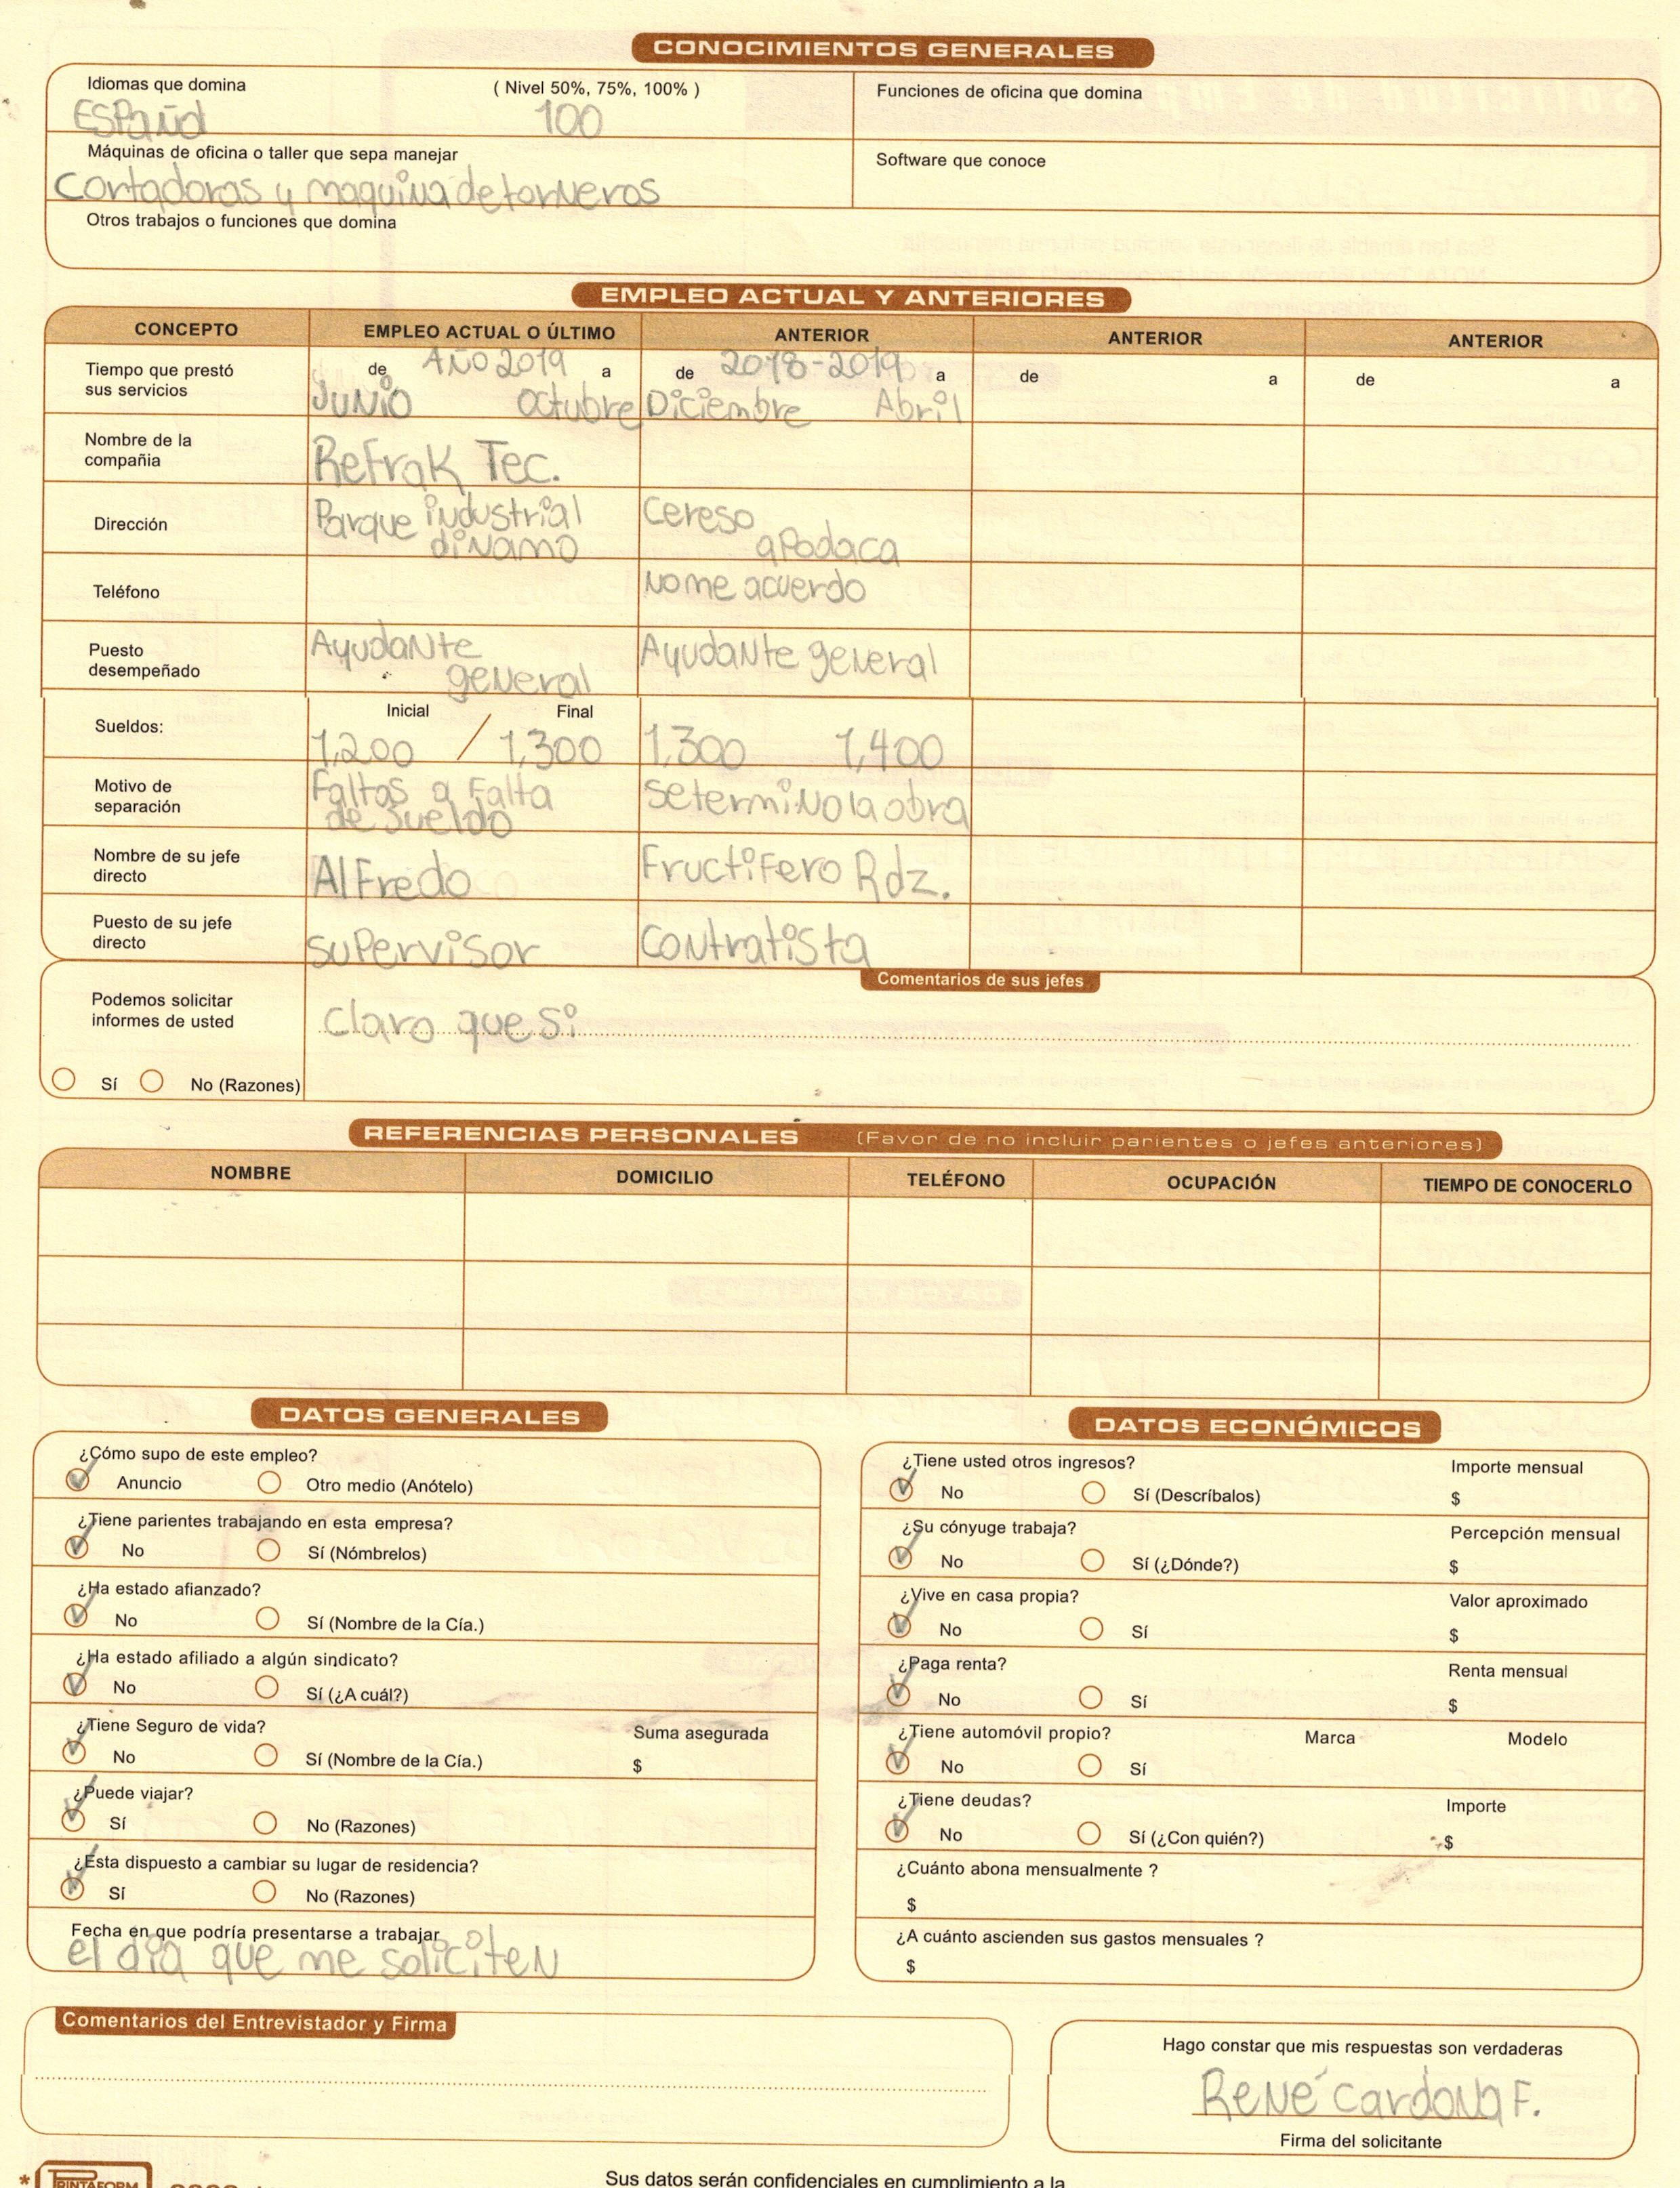 CONOCIMIENTOS GENERALES
Idiomas que domina ( Nivel 50%, 75%, 100% ) Funciones de oficina que domina
ESPañol 100
Máquinas de oficina o taller que sepa manejar Software que conoce
Cortadoras y maquina de torneros
Otros trabajos o funciones que domina
EMPLEO ACTUAL Y ANTERIORES
CONCEPTO EMPLEO ACTUAL O ÚLTIMO ANTERIOR ANTERIOR ANTERIOR
Tiempo que prestó sus servicios
de AÑO 2019 a de 2018-2019 a de a de a
JUNIO Octubre Diciembre Abril
Nombre de la compañia
Refrak Tec.
Dirección
Parque industrial dinamo
Cereso apodaca
Teléfono
No me acuerdo
Puesto desempeñado
Ayudante general
Ayudante general
Sueldos:
Inicial Final
1,200 / 1,300 1,300 1,400
Motivo de separación
Faltas a Falta de Sueldo
Se termino la obra
Nombre de su jefe directo
Alfredo
Fructifero Rdz.
Puesto de su jefe directo
supervisor
Contratista
Comentarios de sus jefes
Podemos solicitar informes de usted
claro que si
Sí No (Razones)
REFERENCIAS PERSONALES (Favor de no incluir parientes o jefes anteriores)
NOMBRE DOMICILIO TELÉFONO OCUPACIÓN TIEMPO DE CONOCERLO
DATOS GENERALES
¿Cómo supo de este empleo?
Anuncio Otro medio (Anótelo)
¿Tiene parientes trabajando en esta empresa?
No Sí (Nómbrelos)
¿Ha estado afianzado?
No Sí (Nombre de la Cía.)
¿Ha estado afiliado a algún sindicato?
No Sí (¿A cuál?)
¿Tiene Seguro de vida? Suma asegurada
No Sí (Nombre de la Cía.) $
¿Puede viajar?
Sí No (Razones)
¿Esta dispuesto a cambiar su lugar de residencia?
Sí No (Razones)
Fecha en que podría presentarse a trabajar
el dia que me soliciten
DATOS ECONÓMICOS
¿Tiene usted otros ingresos? Importe mensual
No Sí (Descríbalos) $
¿Su cónyuge trabaja? Percepción mensual
No Sí (¿Dónde?) $
¿Vive en casa propia? Valor aproximado
No Sí $
¿Paga renta? Renta mensual
No Sí $
¿Tiene automóvil propio? Marca Modelo
No Sí
¿Tiene deudas? Importe
No Sí (¿Con quién?) $
¿Cuánto abona mensualmente ?
$
¿A cuánto ascienden sus gastos mensuales ?
$
Comentarios del Entrevistador y Firma
Hago constar que mis respuestas son verdaderas
René Cardona F.
Firma del solicitante
* PRINTAFORM
Sus datos serán confidenciales en cumplimiento a la